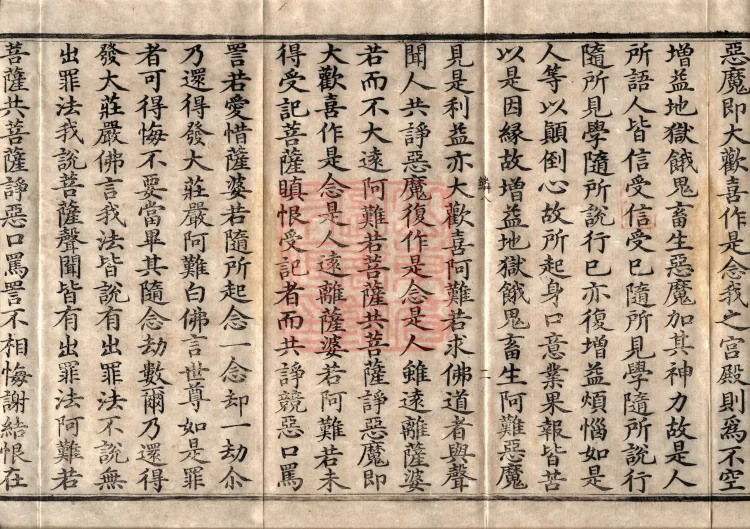 惡魔即大歡喜作是念我之宮殿則為不空
增益地獄餓鬼畜生惡魔加其神力故是人
所語人皆信受信受已隨所見學隨所說行
隨所見學隨所說行已亦復增益煩惱如是
人等以顛倒心故所起身口意業果報皆苦
以是因緣故增益地獄餓鬼畜生阿難惡魔
見是利益亦大歡喜阿難若求佛道者與聲
聞人共諍惡魔復作是念是人雖遠離薩婆
若而不大遠阿難若菩薩共菩薩諍惡魔即
大歡喜作是念是人遠離薩婆若阿難若未
得受記菩薩瞋恨受記者而共諍競惡口罵
詈若愛惜薩婆若隨所起念一念却一劫尒
乃還得發大莊嚴阿難白佛言世尊如是罪
者可得悔不要當畢其隨念劫數爾乃還得
發大莊嚴佛言我法皆說有出罪法不說無
出罪法我說菩薩聲聞皆有出罪法阿難若
菩薩共菩薩諍惡口罵詈不相悔謝結恨在